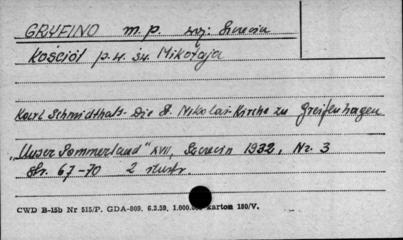 GRYFINO m.p. woj: Szczecin
Kościół p.w. św. Mikołaja
Karl Schmidthals. Die S. Nikolai-Kirche zu Greifenhagen
„Unser Pommerland" XVII, Szczecin 1932, Nr. 3
Str. 67-70 2 ilustr.
CWD B-15b Nr 515/P. GDA-809. 6.2.59. 1.000.000 karton 180/V.